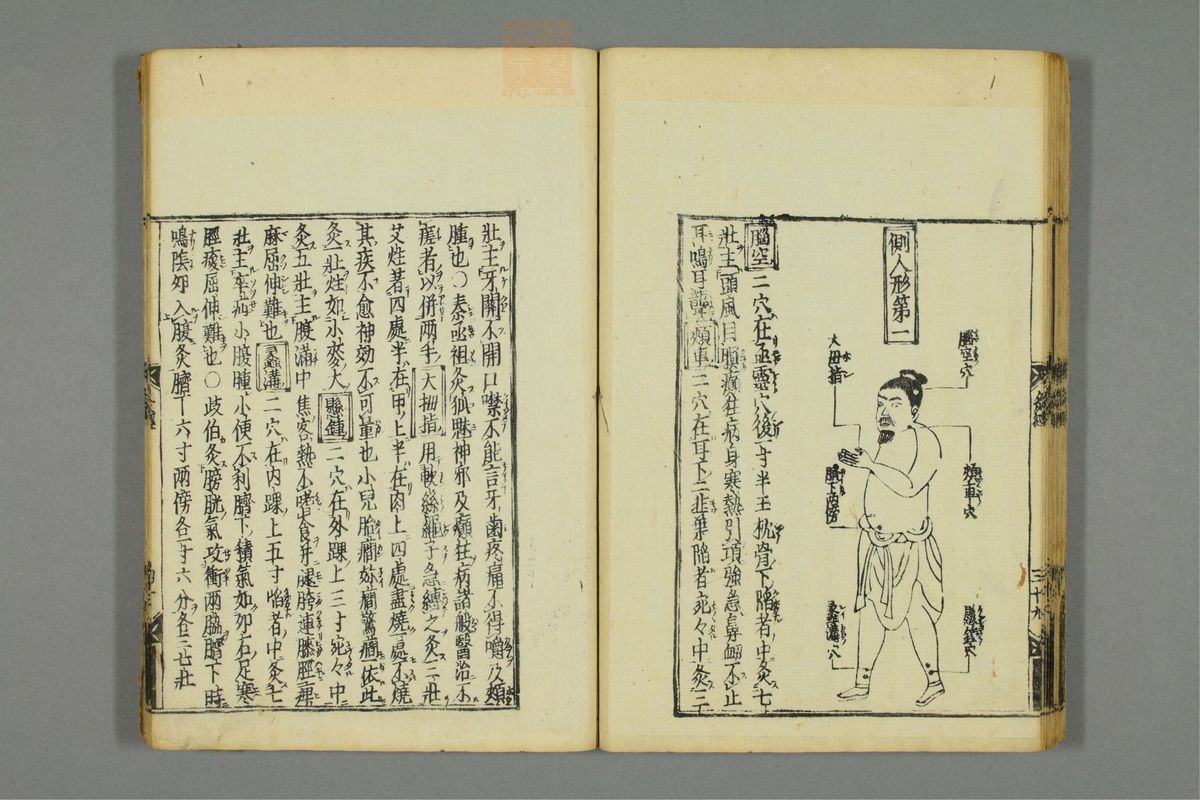 側人形第二
腦空穴
大拇指
頰車穴
臍下兩傍
懸鍾穴
蠡溝穴
腦空二穴在承靈穴後一寸半玉枕骨下陷者中灸七
壯主頭風目瞑癲狂病身寒熱引項強急鼻衄不止
耳鳴耳聾頰車二穴在耳下二韭葉陷者宛々中灸三
壯主牙關不開口噤不能言牙齒疼痛不得嚼及頰
腫也○秦丞祖灸狐魅神邪及癲狂病諸般醫治不
瘥者以併兩手大拇指用軟絲繩子急縛之灸三壯
艾炷著四處半在甲上半在肉上四處盡燒一處不燒
其疾不愈神効不可量也小兒胎癇妳癇驚癇依此
灸一壯炷如小麥大懸鍾二穴在外踝上三寸宛々中
灸五壯主腹滿中焦客熱不嗜食并腿胯連膝脛痺
麻屈伸難也蠡溝二穴在內踝上五寸陷者中灸七
壯主卒疝小腹腫小便不利臍下積氣如卵石足寒
脛痠屈伸難也○歧伯灸膀胱氣攻衝兩脇臍下時
鳴陰卵入腹灸臍下六寸兩傍各一寸六分各三七壯